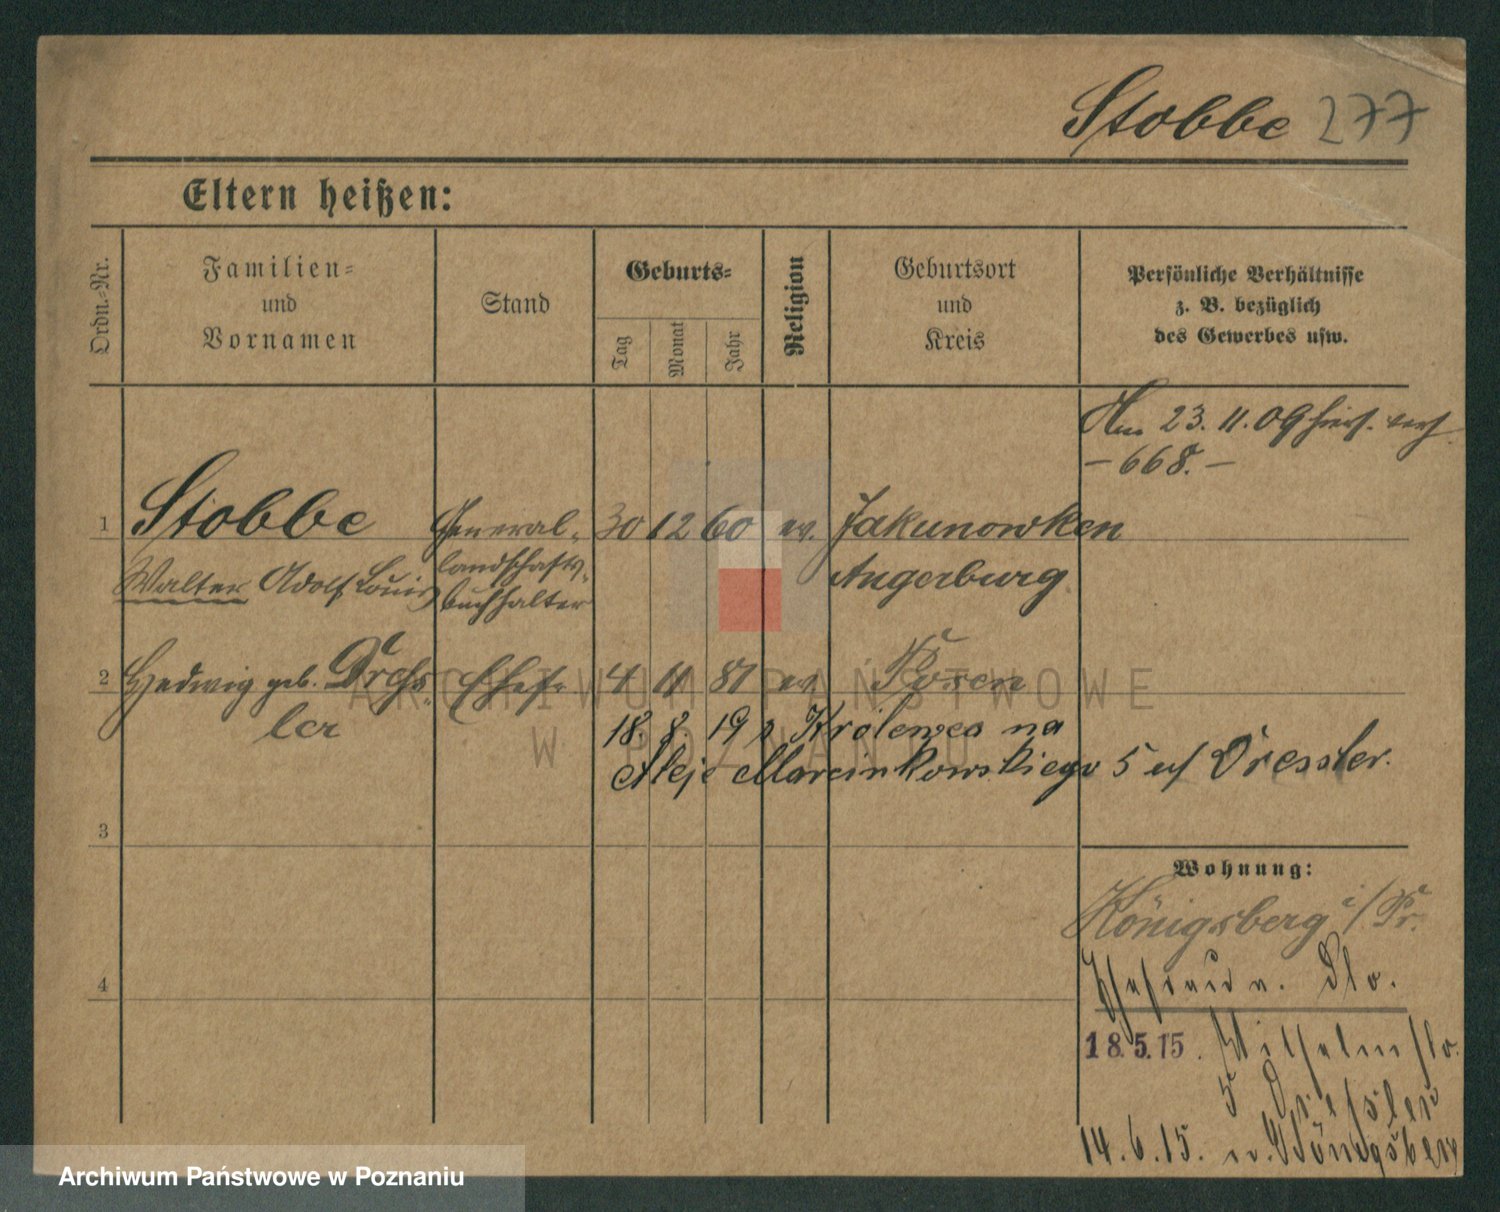 Stobbe 277
Eltern heißen:
Ordn.-Nr.
Familien-
und
Vornamen
Stand
Geburts-
Tag
Monat
Jahr
Religion
Geburtsort
und
Kreis
Persönliche Verhältnisse
z. B. bezüglich
des Gewerbes usw.
Am 23. 11. 09 hier.
– 668. –
1 Stobbe General- 30 12 60 ev. Jakunowken
Walter Adolf Louis landschafts- Angerburg.
buchhalter
2 Hedwig geb. Dress- Ehefr. 4 11 81 ev. Posen
ler
18. 8. 19 z Królewca na
Aleje Marcinkowskiego 5 u/ Dressler.
3
Wohnung:
Königsberg i/Pr.
4
Ehefrau v.
18.5.15. Wilhelmstr.
5 Dressler
14.6.15. n. Königsberg
ARCHIWUM PAŃSTWOWE
W POZNANIU
Archiwum Państwowe w Poznaniu